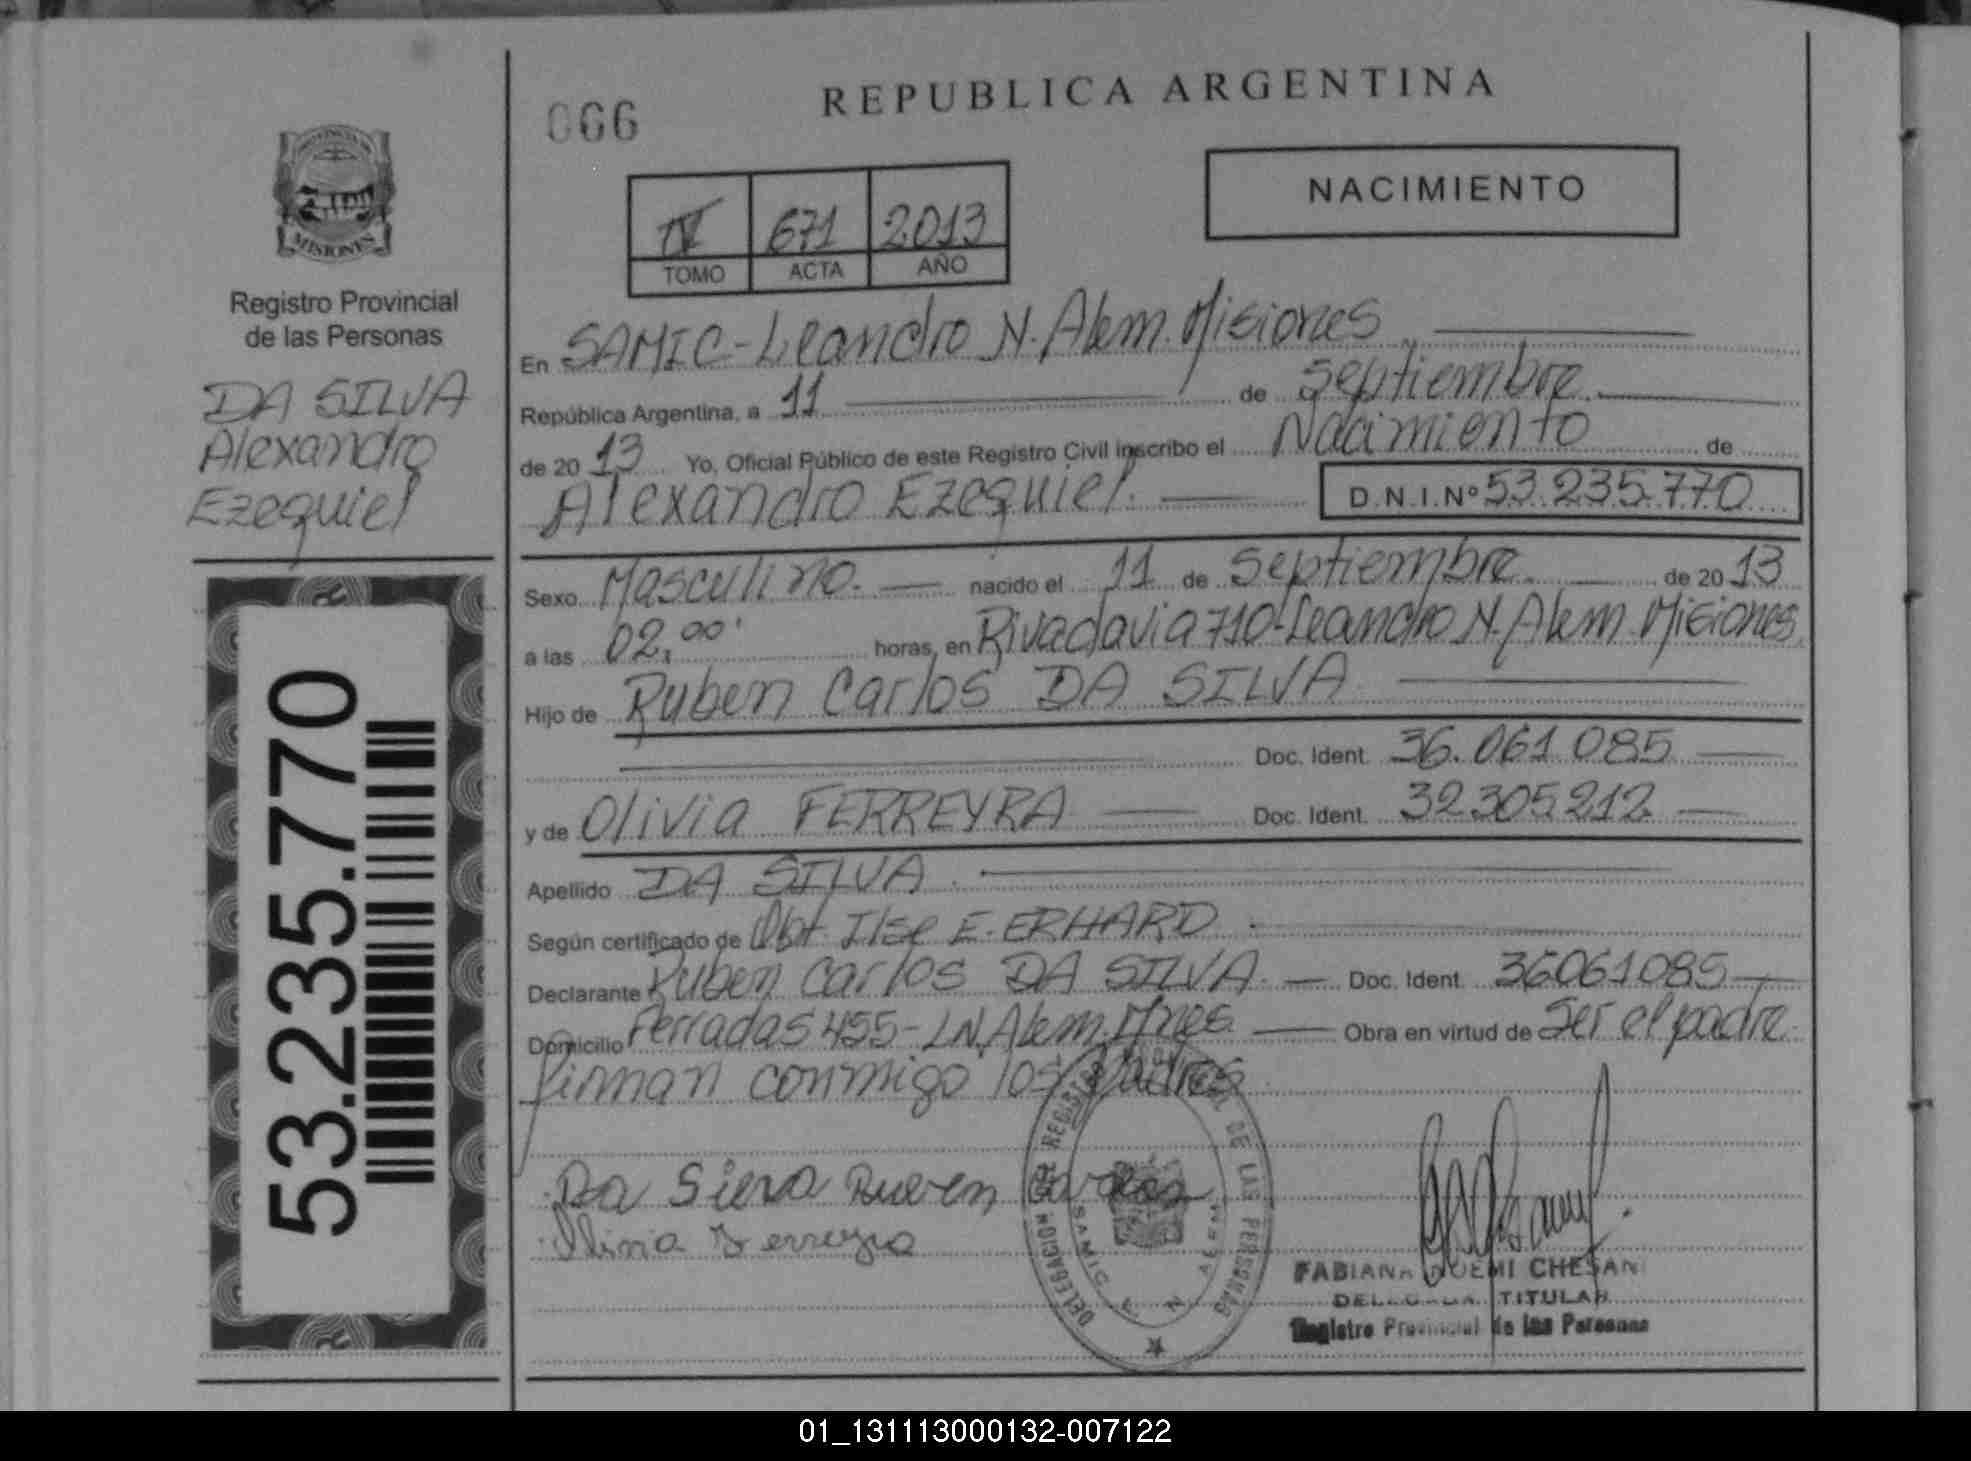 066
REPUBLICA ARGENTINA
NACIMIENTO
IV 671 2013
TOMO ACTA AÑO
PROVINCIA DE
MISIONES
Registro Provincial
de las Personas
DA SILVA
Alexandro
Ezequiel
53.235.770
En SAMIC-Leandro N. Alem. Misiones
República Argentina, a 11 de Septiembre
de 2013 Yo, Oficial Público de este Registro Civil inscribo el Nacimiento de
Alexandro Ezequiel. D.N.I.Nº 53.235.770
Sexo Masculino. nacido el 11 de Septiembre de 2013
a las 02,00' horas, en Rivadavia 710-Leandro N. Alem. Misiones
Hijo de Ruben Carlos DA SILVA
Doc. Ident. 36.061.085
y de Olivia FERREYRA Doc. Ident. 32305212
Apellido DA SILVA.
Según certificado de Obt. Ilse E. ERHARD
Declarante Ruben Carlos DA SILVA. Doc. Ident. 36061085
Domicilio 455-LN.Alem.Mnes. Obra en virtud de Ser el padre.
firman conmigo los Padres
Da Silva Ruben Carlos
Olivia Ferreyra
DELEGACION DEL REGISTRO PROVINCIAL DE LAS PERSONAS
SAMIC EN ALEM
FABIANA NOEMI CHESANI
DELEGADA TITULAR
Registro Provincial de las Personas
01_131113000132-007122